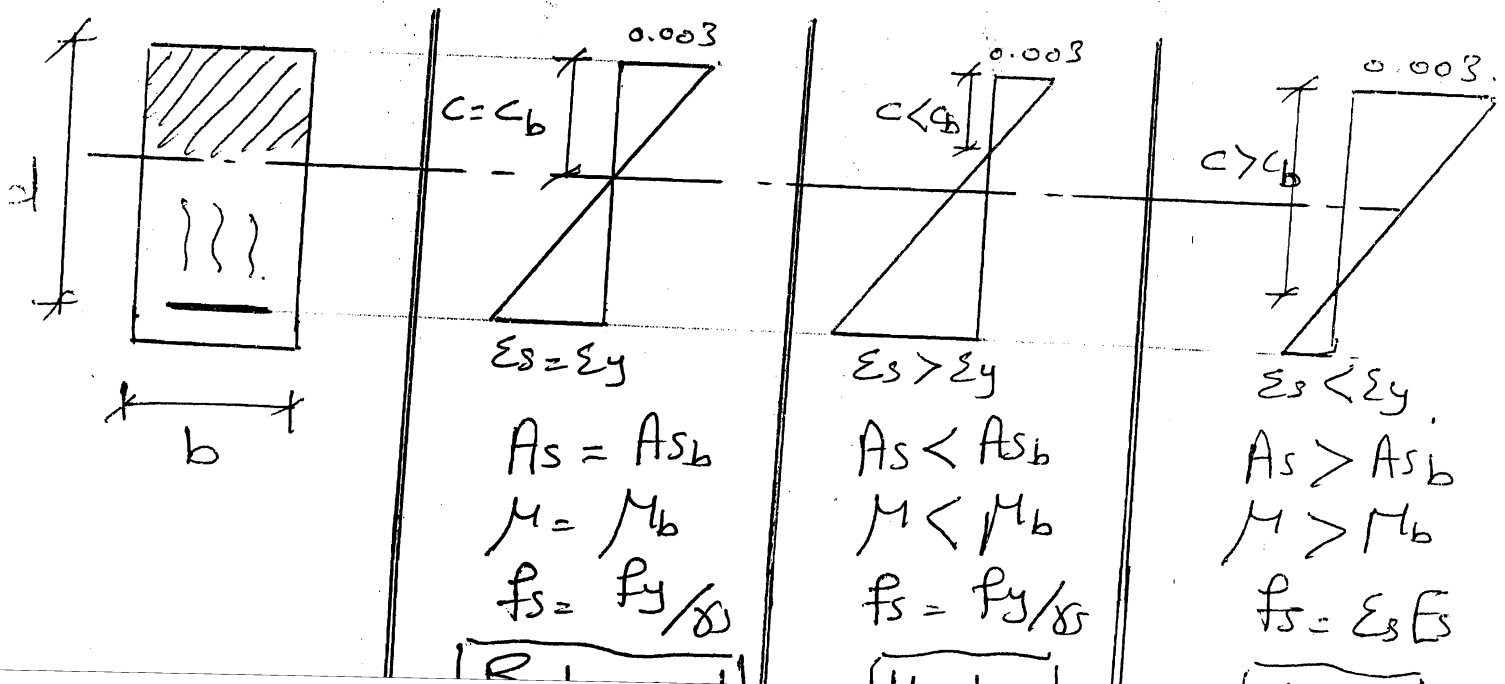 d
b
0.003
c = cb
εs = εy
As = Asb
μ = μb
fs = fy/γs
0.003
c < cb
εs > εy
As < Asb
μ < μb
fs = fy/γs
0.003.
c > cb
εs < εy.
As > Asb
μ > μb
fs = εs Es